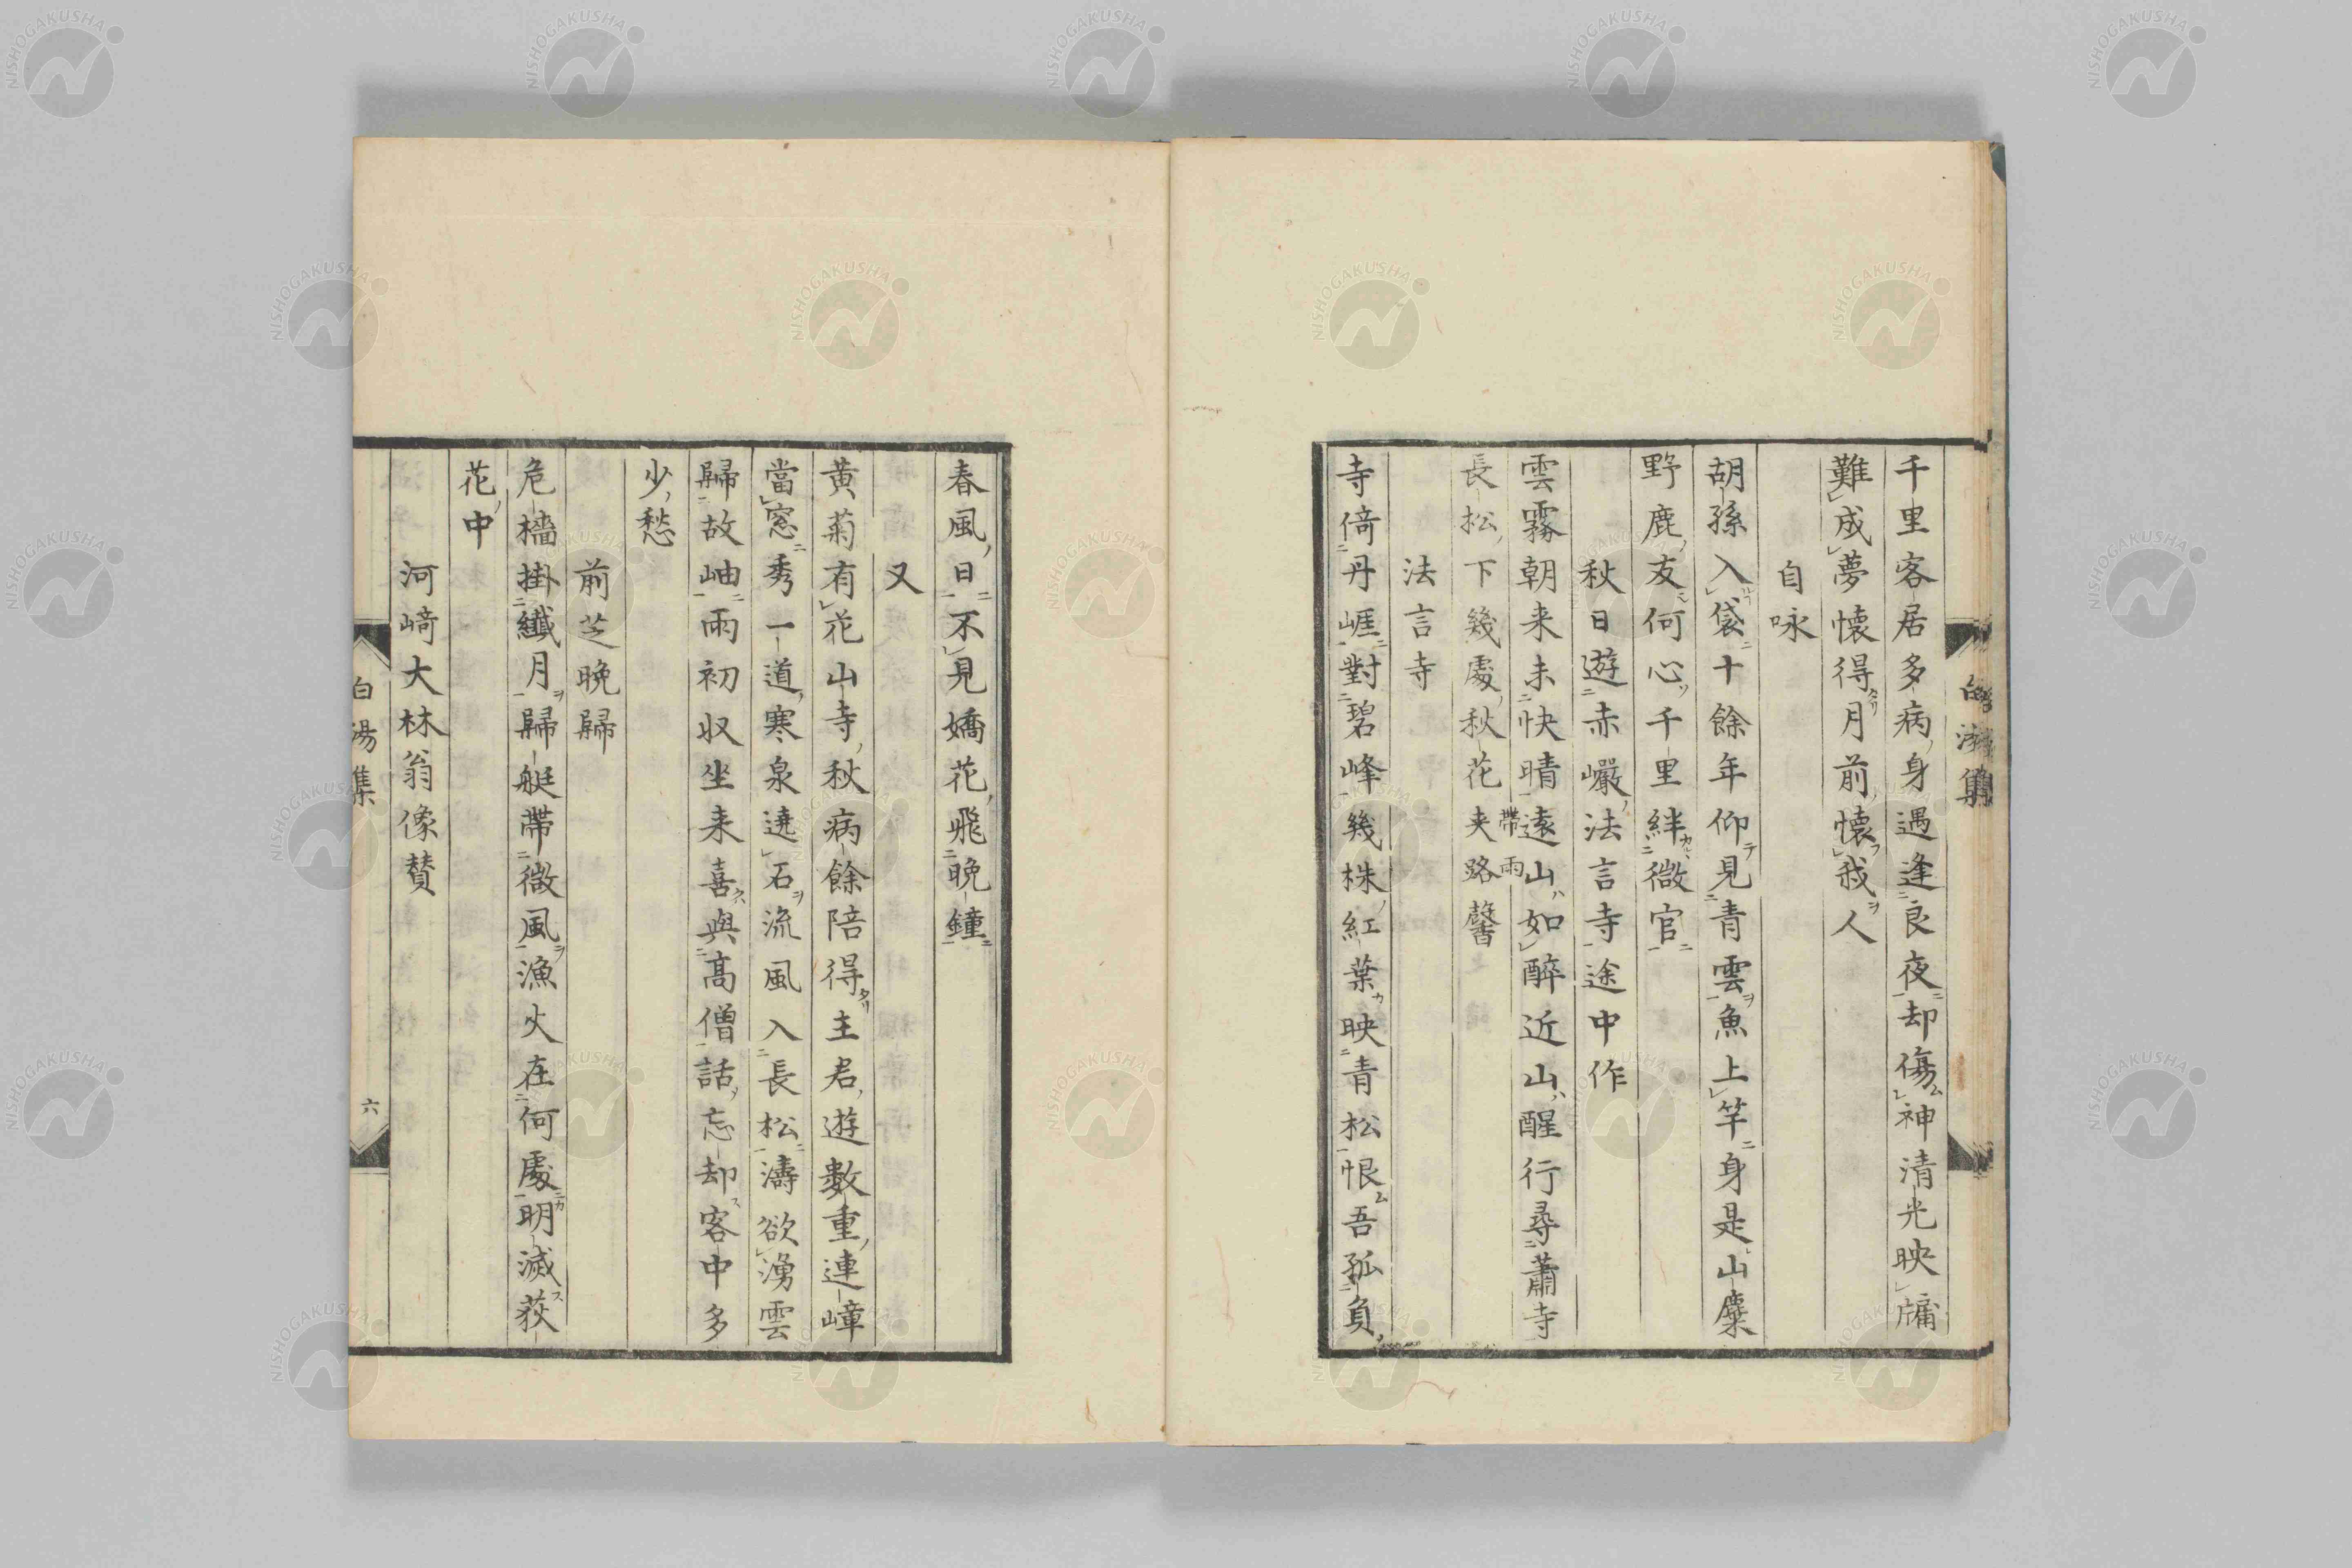 千里客居多病身遇逢良夜却傷神清光映牖
難成夢懷得月前懷我人
自咏
胡孫入袋十餘年仰見青雲魚上竿身是山麋
野鹿友何心千里絆微官
秋日遊赤巖法言寺途中作
雲霧朝来未快晴遠山如醉近山醒行尋蕭寺
帶雨
長松下幾處秋花夾路馨
法言寺
寺倚丹崕對碧峰幾株紅葉映青松恨吾孤負
春風日不見嬌花飛晩鐘
又
黄菊有花山寺秋病餘陪得主君遊數重連嶂
當窓秀一道寒泉遶石流風入長松濤欲湧雲
歸故岫雨初収坐来喜與髙僧話忘却客中多
少愁
前芝晩歸
危檣掛纖月歸艇帶微風漁火在何處明滅荻
花中
河﨑大林翁像賛
白湯集
六